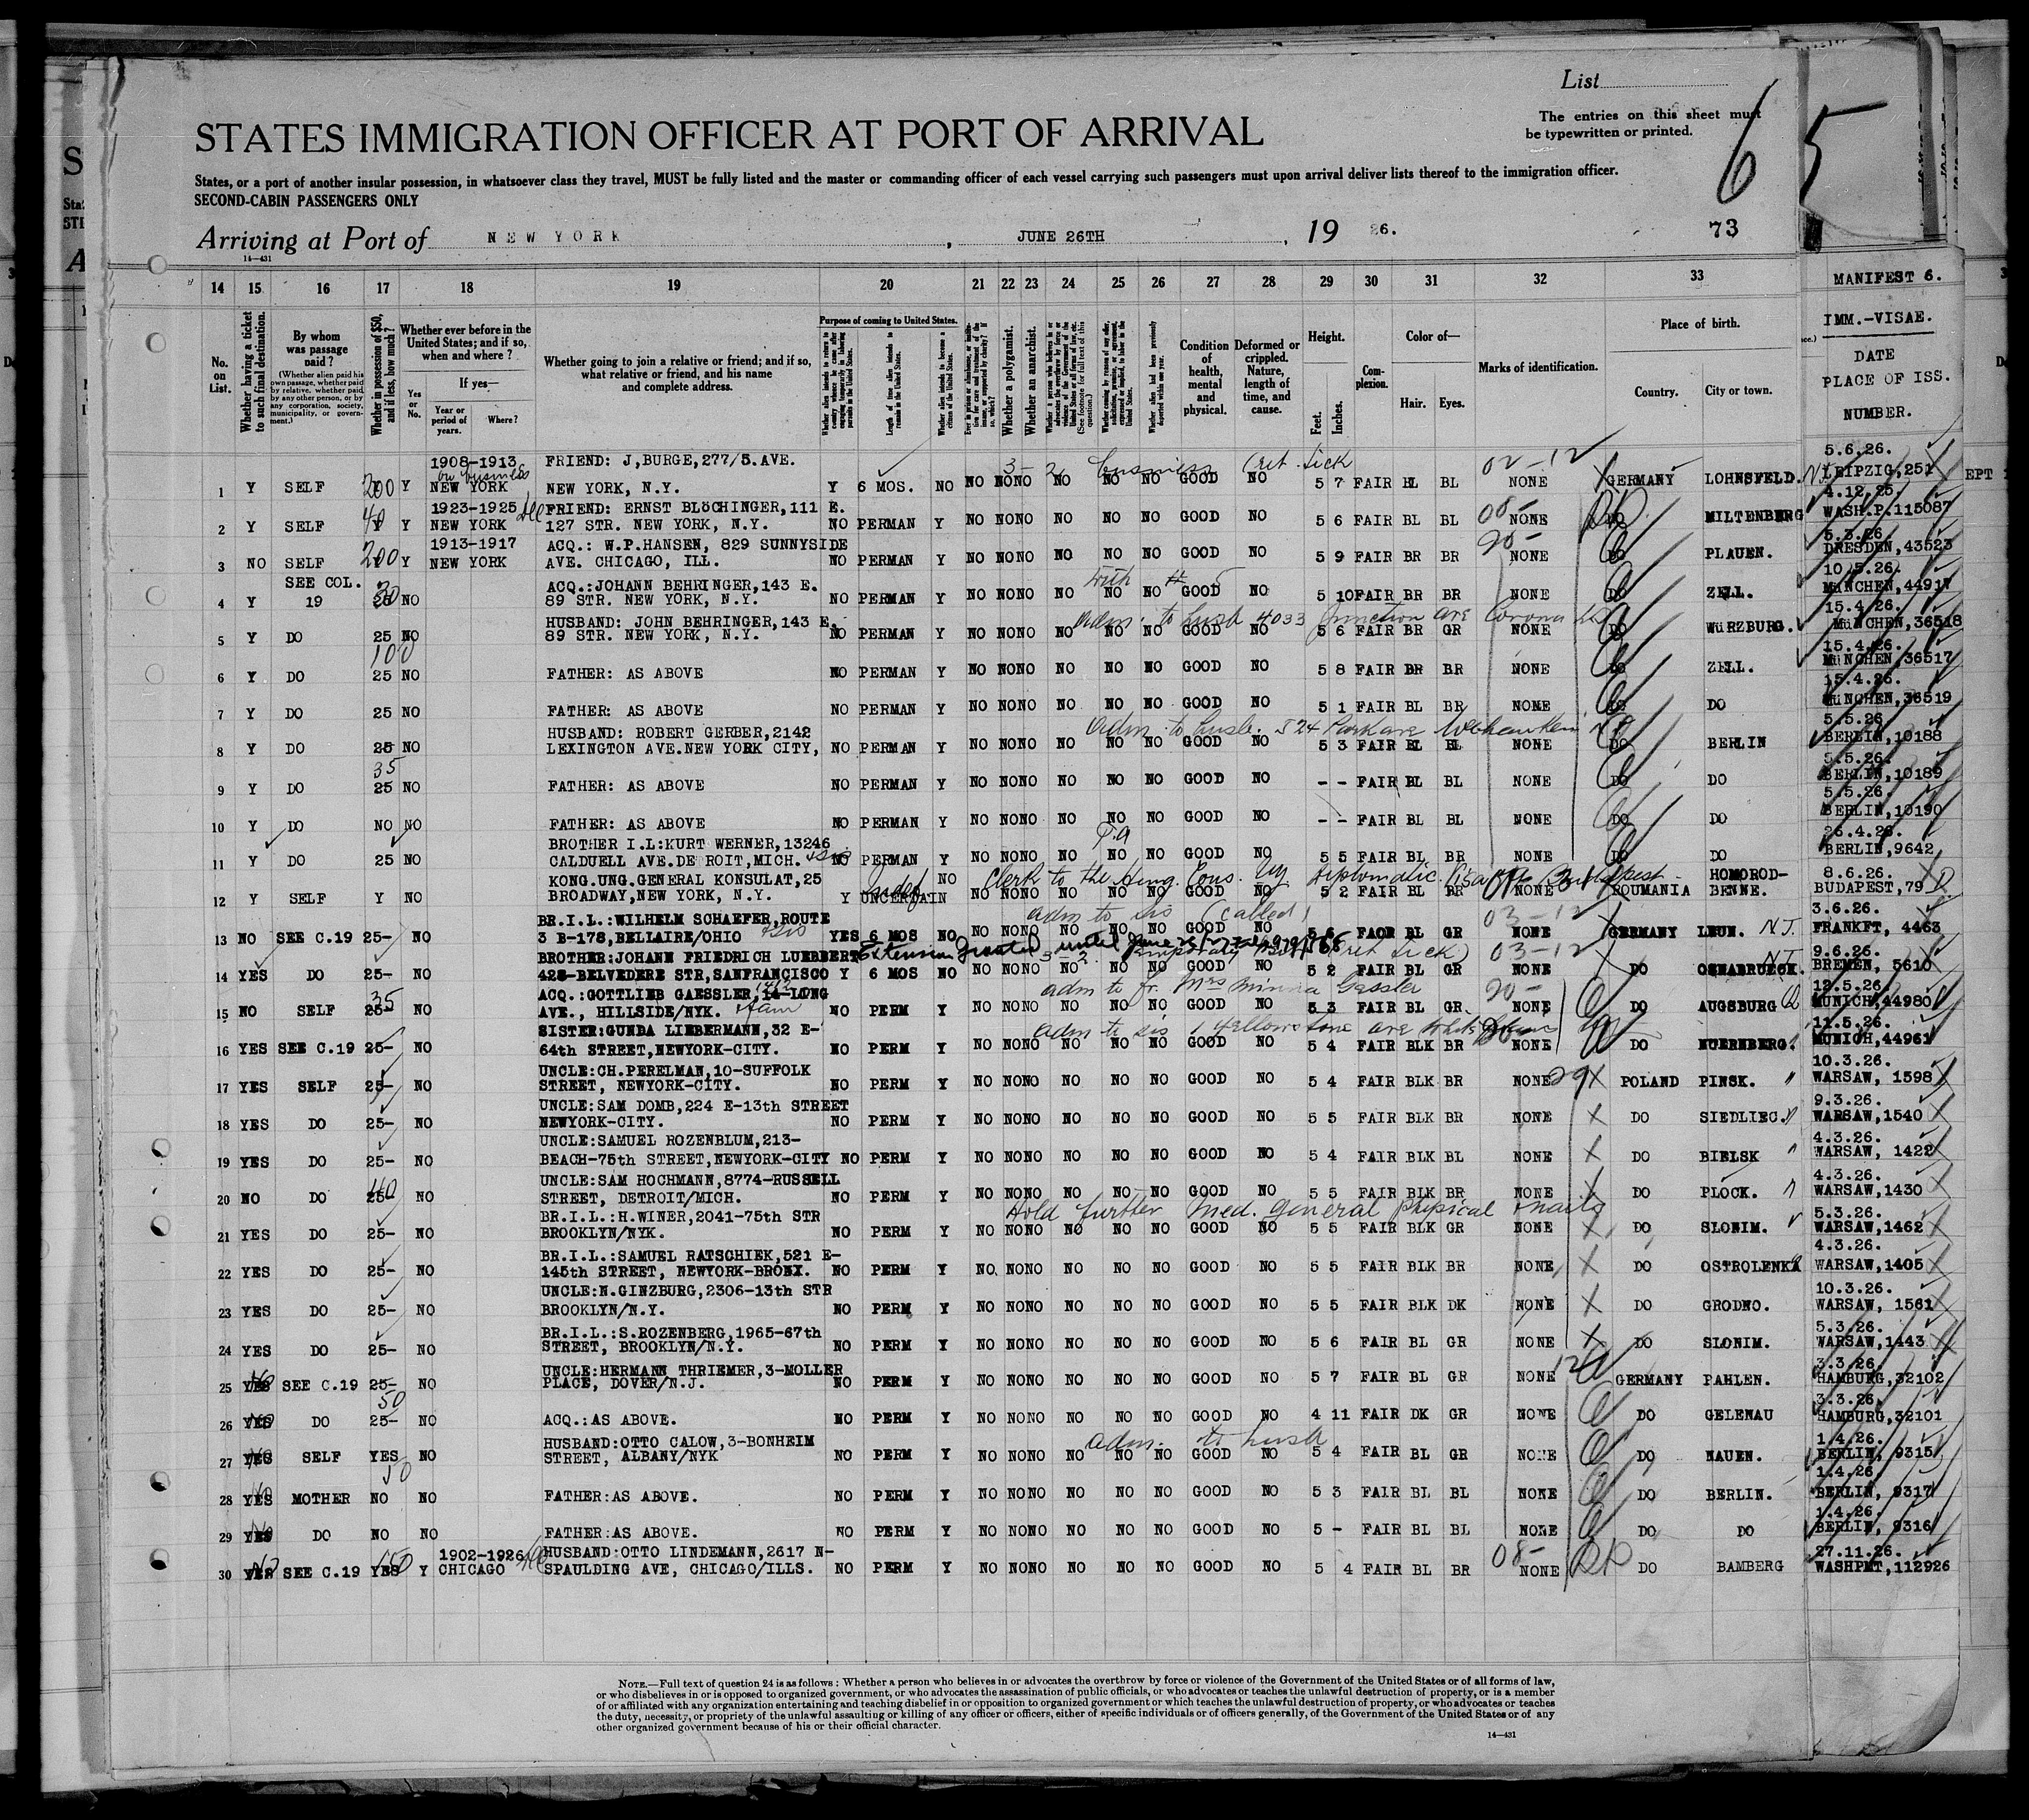 List
The entries on this sheet must
be typewritten or printed.
6
5
STATES IMMIGRATION OFFICER AT PORT OF ARRIVAL
States, or a port of another insular possession, in whatsoever class they travel, MUST be fully listed and the master or commanding officer of each vessel carrying such passengers must upon arrival deliver lists thereof to the immigration officer.
SECOND-CABIN PASSENGERS ONLY
Arriving at Port of NEW YORK, JUNE 26TH, 19 26.
73
14—431
14 15 16 17 18 19 20 21 22 23 24 25 26 27 28 29 30 31 32 33
MANIFEST 6.
IMM.-VISAE.
DATE
PLACE OF ISS.
NUMBER.
No. on List.
Whether having a ticket to such final destination.
By whom was passage paid?
(Whether alien paid his own passage, whether paid by relative, whether paid by any other person, or by any corporation, society, municipality, or government.)
Whether in possession of $50, and if less, how much?
Whether ever before in the United States; and if so, when and where?
If yes—
Yes or No.
Year or period of years.
Where?
Whether going to join a relative or friend; and if so, what relative or friend, and his name and complete address.
Purpose of coming to United States.
Whether a polygamist.
Whether an anarchist.
Condition of health, mental and physical.
Deformed or crippled. Nature, length of time, and cause.
Height.
Feet. Inches.
Complexion.
Color of—
Hair. Eyes.
Marks of identification.
Place of birth.
Country. City or town.
1908-1913 FRIEND: J,BURGE,277/5.AVE. 3-2 business (ret. tick 02-12 5.6.26.
1 Y SELF 200 Y on business NEW YORK NEW YORK, N.Y. Y 6 MOS. NO NO NO NO NO NO NO GOOD NO 5 7 FAIR BL BL NONE GERMANY LOHNSFELD. LEIPZIG,251
1923-1925 FRIEND: ERNST BLöCHINGER,111 E. 4.12.25.
2 Y SELF 40 Y NEW YORK 127 STR. NEW YORK, N.Y. NO PERMAN Y NO NO NO NO NO NO GOOD NO 5 6 FAIR BL BL 08- NONE DO MILTENBERG WASH.P.115087
1913-1917 ACQ.: W.P.HANSEN, 829 SUNNYSIDE 5.3.26
3 NO SELF 200 Y NEW YORK AVE. CHICAGO, ILL. NO PERMAN Y NO NO NO NO NO NO GOOD NO 5 9 FAIR BR BR 20- NONE DO PLAUEN. DRESDEN,43523
SEE COL. ACQ.:JOHANN BEHRINGER,143 E. with # 5 10.5.26.
4 Y 19 25 30 NO 89 STR. NEW YORK, N.Y. NO PERMAN Y NO NO NO NO NO NO GOOD NO 5 10 FAIR BR BR NONE DO ZELL. MÜNCHEN,44917
HUSBAND: JOHN BEHRINGER,143 E. adm. to husb 4033 Junction ave Corona 15.4.26.
5 Y DO 25 NO 89 STR. NEW YORK, N.Y. NO PERMAN Y NO NO NO NO NO NO GOOD NO 5 6 FAIR BR GR NONE DO WüRZBURG. MüNCHEN,36518
100 15.4.26.
6 Y DO 25 NO FATHER: AS ABOVE NO PERMAN Y NO NO NO NO NO NO GOOD NO 5 8 FAIR BR BR NONE DO ZELL. MüNCHEN,36517
15.4.26.
7 Y DO 25 NO FATHER: AS ABOVE NO PERMAN Y NO NO NO NO NO NO GOOD NO 5 1 FAIR BL BR NONE DO DO MüNCHEN,36519
HUSBAND: ROBERT GERBER,2142 adm. to husb. 524 Park ave Weehawken 5.5.26
8 Y DO 25 NO LEXINGTON AVE.NEW YORK CITY, NO PERMAN Y NO NO NO NO NO NO GOOD NO 5 3 FAIR BL BL NONE DO BERLIN BERLIN,10188
35 5.5.26.
9 Y DO 25 NO FATHER: AS ABOVE NO PERMAN Y NO NO NO NO NO NO GOOD NO - - FAIR BL BL NONE DO DO BERLIN,10189
5.5.26.
10 Y DO NO NO FATHER: AS ABOVE NO PERMAN Y NO NO NO NO NO NO GOOD NO - - FAIR BL BL NONE DO DO BERLIN,10190
BROTHER I.L:KURT WERNER,13246 26.4.26.
11 Y DO 25 NO CALDUELL AVE.DE ROIT,MICH. NO PERMAN Y NO NO NO NO NO NO GOOD NO 5 5 FAIR BL BR NONE DO DO BERLIN,9642
KONG.UNG.GENERAL KONSULAT,25 Indef NO Clerk to the Hung. Cons. Diplomatic Visa Budapest HOMOROD- 8.6.26.
12 Y SELF Y NO BROADWAY,NEW YORK, N.Y. Y UNCERTAIN NO NO NO NO NO NO GOOD NO 5 2 FAIR BL BR NONE ROUMANIA BENNE. BUDAPEST,79
BR.I.L.:WILHELM SCHAEFER,ROUTE adm to sis (cabled) 03-12 3.6.26.
13 NO SEE C.19 25- NO 3 B-178,BELLAIRE/OHIO YES 6 MOS NO NO NO NO NO NO NO GOOD NO FAIR BL GR NONE GERMANY LEUN. N.T. FRANKFT, 4463
BROTHER:JOHANN FRIEDRICH LUEBBERT Extension Granted until June 26/27 3-2 temporary (ret tick) 03-12 9.6.26.
14 YES DO 25- NO 428-BELVEDERE STR,SANFRANCISCO Y 6 MOS NO NO NO NO NO NO NO GOOD NO 5 2 FAIR BL GR NONE DO OSNABRUECK. N.T. BREMEN, 5610
ACQ.:GOTTLIEB GAESSLER,14-LONG adm to fr. Mrs Minna Gessler 20- 12.5.26.
15 NO SELF 35 25- NO AVE., HILLSIDE/NYK. NO PERM Y NO NO NO NO NO NO GOOD NO 5 3 FAIR BL GR NONE DO AUGSBURG MUNICH,44980
SISTER:GUNDA LIEBERMANN,32 E- adm to sis 1 Yellowstone ave White Plains 11.5.26.
16 YES SEE C.19 25- NO 64th STREET,NEWYORK-CITY. NO PERM Y NO NO NO NO NO NO GOOD NO 5 4 FAIR BLK BR NONE DO NUERNBERG. MUNICH,44961
UNCLE:CH.PERELMAN,10-SUFFOLK 10.3.26.
17 YES SELF 25- NO STREET, NEWYORK-CITY. NO PERM Y NO NO NO NO NO NO GOOD NO 5 4 FAIR BLK BR NONE 29 POLAND PINSK. WARSAW, 1598
UNCLE:SAM DOMB,224 E-13th STREET 9.3.26.
18 YES DO 25- NO NEWYORK-CITY. NO PERM Y NO NO NO NO NO NO GOOD NO 5 5 FAIR BLK BR NONE DO SIEDLIEC. WARSAW,1540
UNCLE:SAMUEL ROZENBLUM,213- 4.3.26.
19 YES DO 25- NO BEACH-75th STREET,NEWYORK-CITY NO PERM Y NO NO NO NO NO NO GOOD NO 5 4 FAIR BLK BL NONE DO BIELSK WARSAW, 1422
UNCLE:SAM HOCHMANN,8774-RUSSELL 4.3.26.
20 NO DO 25- 40 NO STREET, DETROIT/MICH. NO PERM Y NO NO NO NO NO NO GOOD NO 5 5 FAIR BLK BR NONE DO PLOCK. WARSAW,1430
BR.I.L.:H.WINER,2041-75th STR Hold further Med. general physical 5.3.26.
21 YES DO 25- NO BROOKLYN/NYK. NO PERM Y NO NO NO NO NO NO GOOD NO 5 5 FAIR BLK GR NONE DO SLONIM. WARSAW,1462
BR.I.L.:SAMUEL RATSCHIEK,521 E- 4.3.26.
22 YES DO 25- NO 145th STREET, NEWYORK-BRONX. NO PERM Y NO NO NO NO NO NO GOOD NO 5 5 FAIR BLK BR NONE DO OSTROLENKA WARSAW,1405
UNCLE:N.GINZBURG,2306-13th STR 10.3.26.
23 YES DO 25- NO BROOKLYN/N.Y. NO PERM Y NO NO NO NO NO NO GOOD NO 5 5 FAIR BLK DK NONE DO GRODNO. WARSAW, 1561
BR.I.L.:S.ROZENBERG,1965-67th 5.3.26.
24 YES DO 25- NO STREET, BROOKLYN/N.Y. NO PERM Y NO NO NO NO NO NO GOOD NO 5 6 FAIR BL GR NONE DO SLONIM. WARSAW,1443
UNCLE:HERMANN THRIEMER,3-MOLLER 12 3.3.26.
25 YES No SEE C.19 25- NO PLACE, DOVER/N.J. NO PERM Y NO NO NO NO NO NO GOOD NO 5 7 FAIR BL GR NONE GERMANY PAHLEN. HAMBURG,32102
50 3.3.26.
26 YES No DO 25- NO ACQ.:AS ABOVE. NO PERM Y NO NO NO NO NO NO GOOD NO 4 11 FAIR DK GR NONE DO GELENAU HAMBURG,32101
HUSBAND:OTTO CALOW,3-BONHEIM adm. to husb 1.4.26.
27 YES No SELF YES NO STREET, ALBANY/NYK NO PERM Y NO NO NO NO NO NO GOOD NO 5 4 FAIR BL GR NONE DO NAUEN. BERLIN, 9315
50 1.4.26.
28 YES No MOTHER NO NO FATHER:AS ABOVE. NO PERM Y NO NO NO NO NO NO GOOD NO 5 3 FAIR BL BL NONE DO BERLIN. BERLIN, 9317
1.4.26.
29 YES No DO NO NO FATHER:AS ABOVE. NO PERM Y NO NO NO NO NO NO GOOD NO 5 - FAIR BL BL NONE DO DO BERLIN, 9316
1902-1926 HUSBAND:OTTO LINDEMANN,2617 N- 08- 27.11.26.
30 YES No SEE C.19 YES 150 Y CHICAGO SPAULDING AVE, CHICAGO/ILLS. NO PERM Y NO NO NO NO NO NO GOOD NO 5 4 FAIR BL BR NONE DO BAMBERG WASHPMT,112926
NOTE.—Full text of question 24 is as follows: Whether a person who believes in or advocates the overthrow by force or violence of the Government of the United States or of all forms of law,
or who disbelieves in or is opposed to organized government, or who advocates the assassination of public officials, or who advocates or teaches the unlawful destruction of property, or is a member
of or affiliated with any organization entertaining and teaching disbelief in or opposition to organized government or which teaches the unlawful destruction of property, or who advocates or teaches
the duty, necessity, or propriety of the unlawful assaulting or killing of any officer or officers, either of specific individuals or of officers generally, of the Government of the United States or of any
other organized government because of his or their official character.
14—431